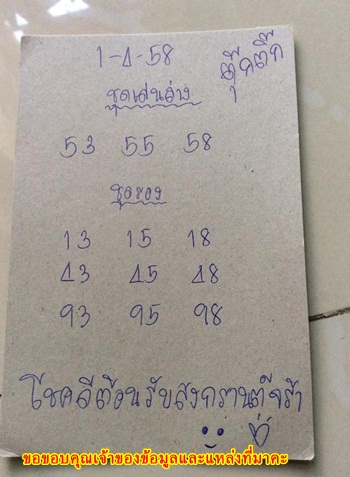 1-4-58
ตุ๊กติ๊ก
ชุดเด่นล่าง
53 55 58
ชุดรอง
13 15 18
43 45 48
93 95 98
โชคดีต้อนรับสงกรานต์จร้า
ขอขอบคุณเจ้าของข้อมูลและแหล่งที่มาคะ